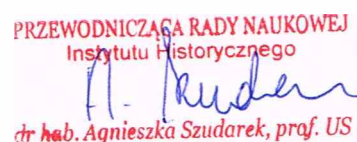 PRZEWODNICZĄCA RADY NAUKOWEJ
Instytutu Historycznego
A. Szudarek
dr hab. Agnieszka Szudarek, prof. US